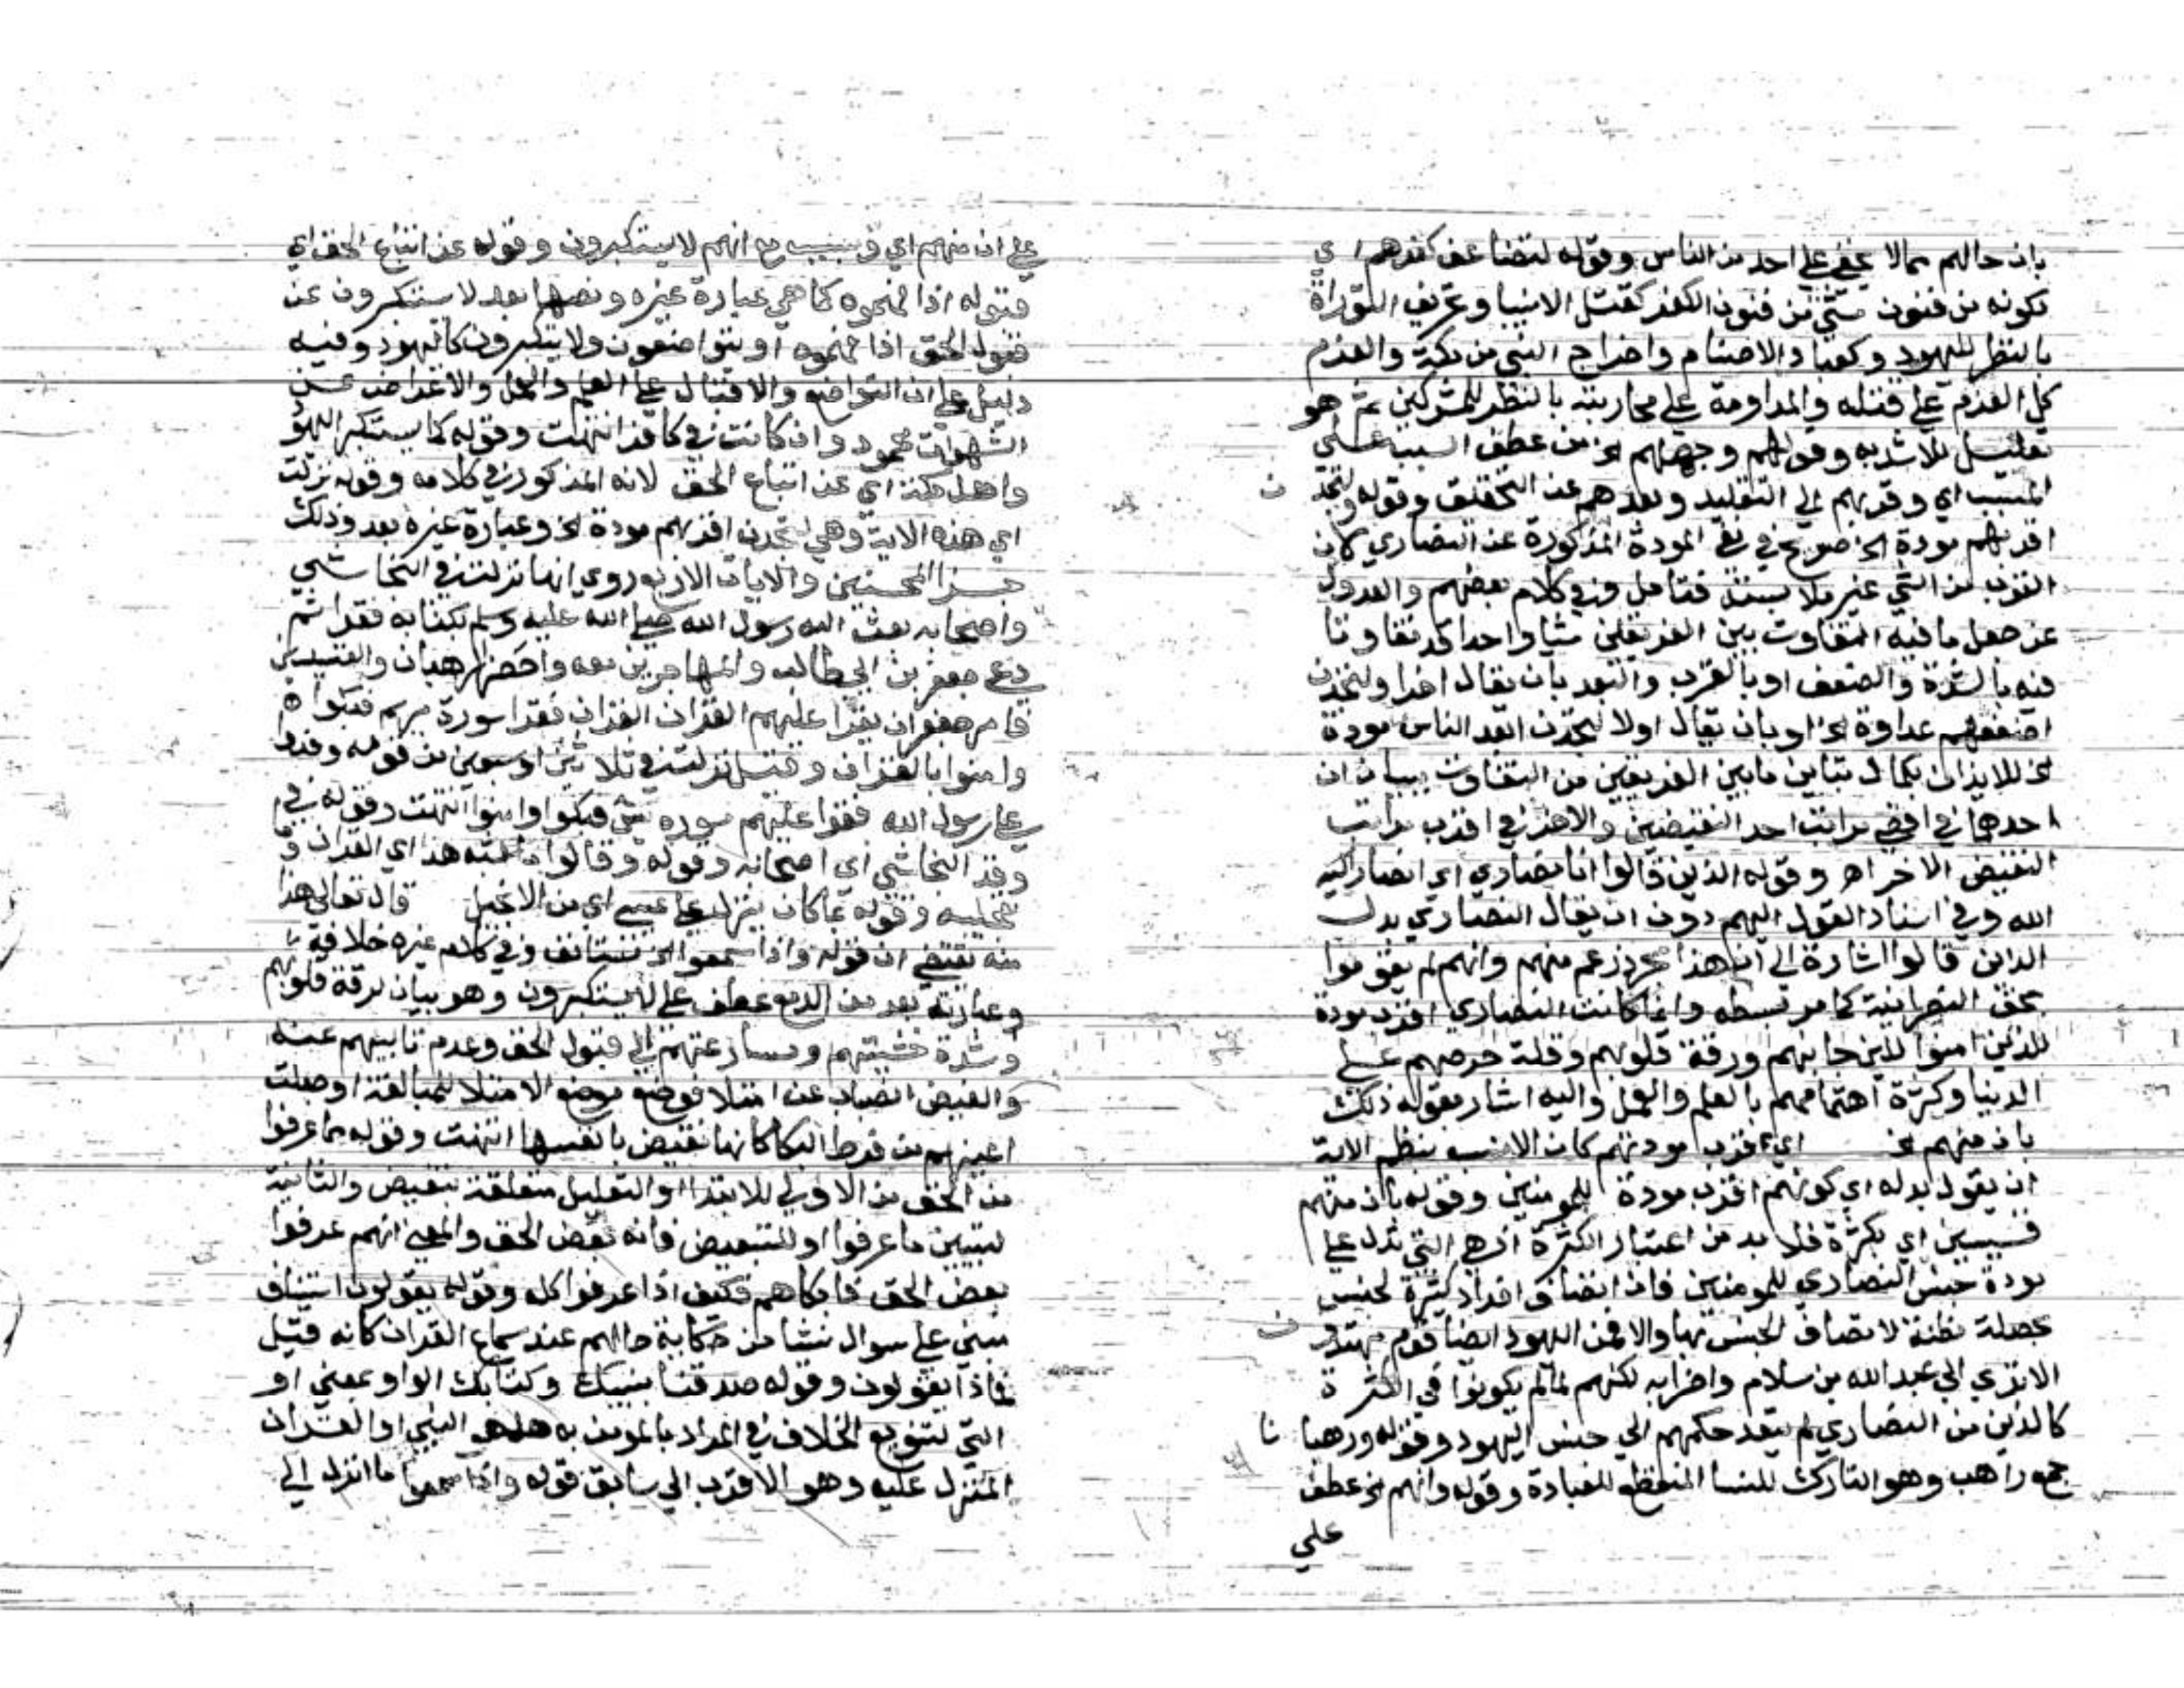 بان حالهم مما لا يخفى على احد من الناس وقوله لتضاعف كفرهم اي
كونه من فنون شتى من فنون الكفر كقتل الانبيا وتحريف التوراة
بالنظر لليهود وكعبادة الاصنام واخراج النبي من مكة والعزم
كل العزم على قتله والمداومة على محاربته بالنظر للمشركين ثم هو
تعليل للاشدية وقوله وجهلهم الخ من عطف السبب على
المسبب اي وقربهم الى التقليد وبعدهم عن التحقيق وقوله ولتجدن
اقربهم مودة الخ صريح في نفي المودة المذكورة عن النصاري كان
القرب من الشي غير ملابسته فتامل وفي كلام بعضهم والعدول
عن جعل ما فيه التفاوت بين الفريقين شيا واحدا قد تفاوتا
فيه بالشدة والضعف او بالقرب والبعد بان يقال اخرا ولتجدن
اضعفهم عداوة الخ او بان يقال اولا لتجدن ابعد الناس مودة
الخ للايذان بكمال تباين ما بين الفريقين من التفاوت ببيان ان
احدهما في اقصى مراتب احد النقيضين والاخر في اقرب مراتب
النقيض الاخر اهـ وقوله الذين قالوا انا نصاري اي انصار
الله وفي اسناد القول اليهم دون ان يقال النصاري بدل
الذين قالوا اشارة الى ان هذا مجرد زعم منهم وانهم لم يقوموا
بحق النصرانية كما مر بسطه وانما كانت النصاري اقرب مودة
للذين امنوا للين جانبهم ورقة قلوبهم وقلة حرصهم على
الدنيا وكثرة اهتمامهم بالعلم والعمل واليه اشار بقوله ذلك
بان منهم الخ اي اقرب مودتهم كان الانسب بنظم الاية
ان يقول بدله اي كونهم اقرب مودة للمومنين وقوله بان منهم
قسيسين اي بكثرة فلا بد من اعتبار الكثرة اذ هي التي تدل على
مودة جنس النصاري للمومنين فان اتصاف افراد كثيرة لجنس
بخصلة مظنة لاتصاف الجنس بها والا فمن اليهود ايضا قوم مهتدون
الا ترى الى عبد الله بن سلام واضرابه لكنهم لما لم يكونوا في الكثرة
كالذين من النصاري لم يتعد حكمهم الى جنس اليهود وقوله ورهبانا
جمع راهب وهو التارك للنسا المنقطع للعبادة وقوله وانهم الخ عطف
على
على ان منهم اي وبسبب انهم لا يستكبرون وقوله عن اتباع الحق اي
قبوله اذا فهموه كما هي عبارة غيره ونصها بعد لا يستكبرون عن
قبول الحق اذا فهموه او يتواضعون ولا يتكبرون كاليهود وفيه
دليل على ان التواضع والاقبال على العلم والعمل والاعراض عن
الشهوات محمود وان كانت في كافر انتهت وقوله كما يستكبر اليهود
واهل مكة اي عن اتباع الحق لانه المذكور في كلامه وقوله نزلت
اي هذه الاية وهي لتجدن اقربهم مودة الخ وعبارة غيره بعد وذلك
جزا المحسنين والايات الاربع روي انها نزلت في النجاشي
واصحابه بعث اليه رسول الله صلى الله عليه وسلم بكتابه فقراه ثم
دعى جعفر بن ابي طالب والمهاجرين معه واحضر الرهبان والقسيسين
فامر جعفر ان يقرا عليهم القران فقرا سورة مريم فبكوا
وامنوا بالقران وقيل نزلت في ثلاثين او سبعين من قومه وفدوا
على رسول الله فقرا عليهم سورة يس فبكوا وامنوا انتهت وقوله في
وفد النجاشي اي اصحابه وقوله وقالوا ما اشبه هذا اي القران
وقوله بما كان ينزل على عيسى اي من الانجيل قال تعالى هذا
منه يقتضي ان قوله واذا سمعوا الخ مستانف وفي كلام غيره خلافه
وعبارته بعد من الدمع عطف على لا يستكبرون وهو بيان لرقة قلوبهم
وشدة خشيتهم ومسارعتهم الى قبول الحق وعدم تابيهم عنه
والفيض انصباب عن امتلا فوضع موضع الامتلا للمبالغة او جعلت
اعينهم من فرط البكا كانها تفيض بانفسها انتهت وقوله مما عرفوا
من الحق من الاولى للابتدا او التعليل متعلقة بتفيض والثانية
لتبيين ما عرفوا او للتبعيض فانه بعض الحق والمعنى انهم عرفوا
بعض الحق فابكاهم فكيف اذا عرفوا كله وقوله يقولون استيناف
مبني على سوال نشا من حكاية حالهم عند سماع القران كانه قيل
فماذا يقولون وقوله صدقنا بنبيك وكتابك الواو بمعنى او
التي لتنويع الخلاف في المراد بالمومن به هل هو النبي او القران
المنزل عليه وهو الاقرب الى سابق قوله واذا سمعوا ما انزل الى